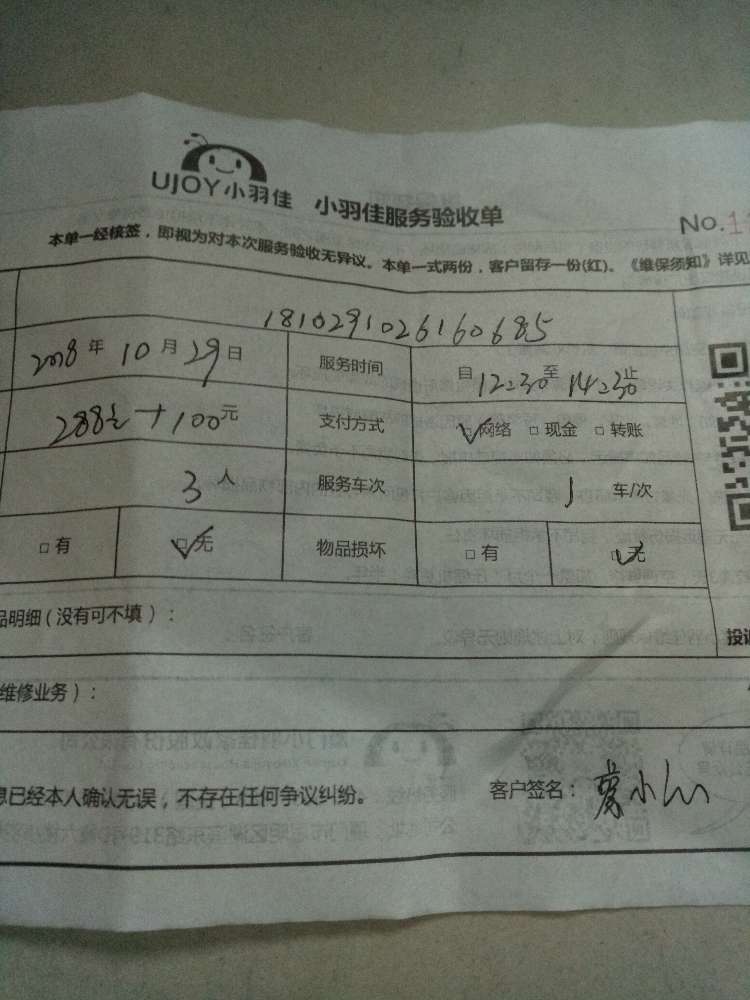 UJOY小羽佳 小羽佳服务验收单
No.1
本单一经核签，即视为对本次服务验收无异议。本单一式两份，客户留存一份(红)。《维保须知》详见
1810291026160685
2018年10月29日 服务时间 自12:30至14:30止
288元+100元 支付方式 ☑网络 □现金 □转账
3人 服务车次 1车/次
□有 ☑无 物品损坏 □有 ☑无
品明细（没有可不填）：
投诉
维修业务）：
息已经本人确认无误，不存在任何争议纠纷。 客户签名：